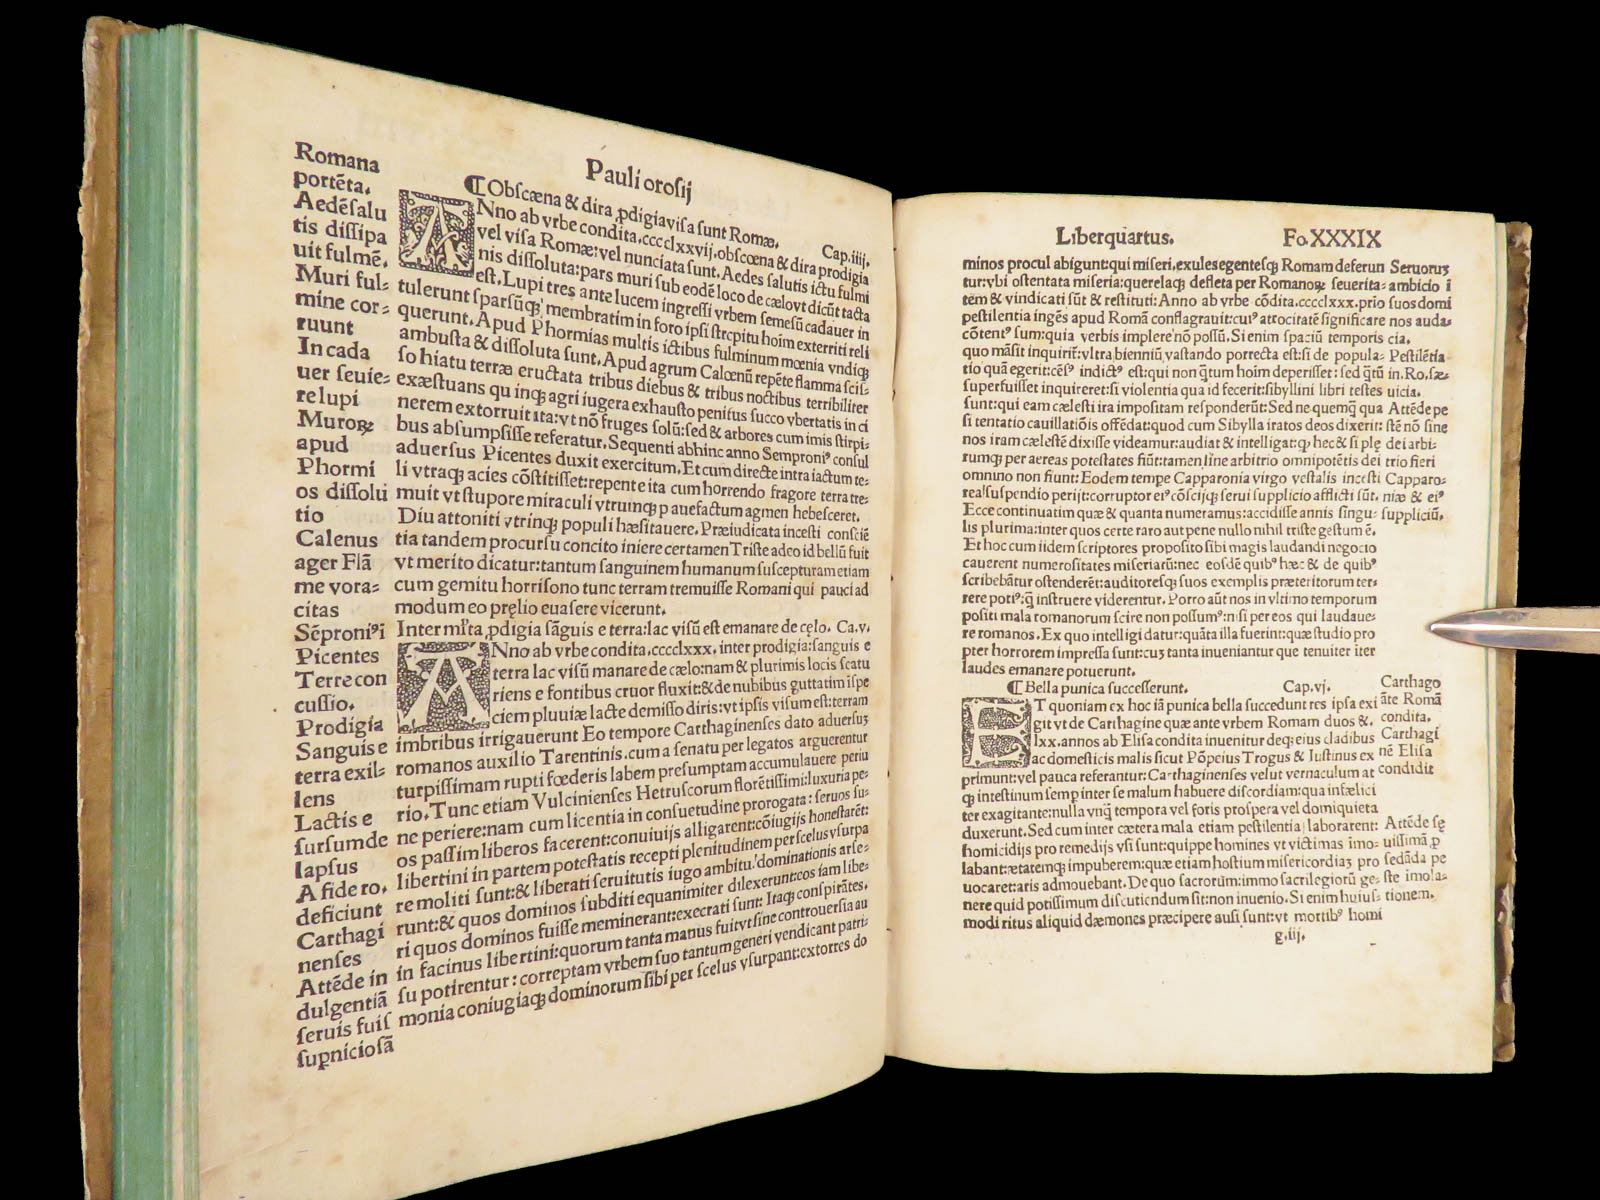 Pauli orosij
Romana
portẽta.
Aedẽsalu
tis dissipa
uit fulmẽ.
Muri ful-
mine cor-
ruunt
In cada
uer seuie-
re lupi
Muroꝝ
apud
Phormi
os dissolu
tio
Calenus
ager Flã
me vora-
citas
Sẽproniꝰi
Picentes
Terre con
cussio.
Prodigia
Sanguis e
terra exil-
lens
Lactis e
sursum de
lapsus
A fide ro.
deficiunt
Carthagi
nenses
Attẽde in
dulgentiã
seruis fuis
suꝑniciosã
¶ Obscæna & dira ꝓdigia visa sunt Romæ. Cap.iiij.
ANno ab vrbe condita.cccclxxvij.obscœna & dira prodigia
vel visa Romæ:vel nunciata sunt. Aedes salutis ictu fulmi
nis dissoluta:pars muri sub eodẽ loco de cælo vt dicũt tacta
est. Lupi tres ante lucem ingressi vrbem semesũ cadauer in
tulerunt sparsũqꝫ membratim in foro ipsi strepitu hoim exterriti reli
querunt. Apud Phormias multis ictibus fulminum mœnia vndiqꝫ
ambusta & dissoluta sunt. Apud agrum Calœnũ repẽte flamma scis-
so hiatu terræ eructata tribus diebus & tribus noctibus terribiliter
exæstuans quinqꝫ agri iugera exhausto penitus succo vbertatis in ci
nerem extorruit ita:vt nõ fruges solũ:sed & arbores cum imis stirpi-
bus absumpsisse referatur. Sequenti abhinc anno Semproniꝰ consul
aduersus Picentes duxit exercitum. Et cum directe intra iactum te-
li vtraqꝫ acies cõstitisset:repente ita cum horrendo fragore terra tre-
muit vt stupore miraculi vtrumqꝫ pauefactum agmen hebesceret.
Diu attoniti vtrinqꝫ populi hæsitauere. Præiudicata incesti consciẽ
tia tandem procursu concito iniere certamen Triste adeo id bellũ fuit
vt merito dicatur:tantum sanguinem humanum susceptura metiam
cum gemitu horrisono tunc terram tremuisse Romani qui pauci ad
modum eo pręlio euasere vicerunt.
Inter mĩta ꝓdigia sãguis e terra:lac visũ est emanare de cęlo. Ca.v.
ANno ab vrbe condita.cccclxxx. inter prodigia:sanguis e
terra lac visũm manare de cælo:nam & plurimis locis scatu
riens e fontibus cruor fluxit:& de nubibus guttatim ĩspe
ciem pluuiæ lacte demisso diris:vt ipsis visum est:terram
imbribus irrigauerunt Eo tempore Carthaginenses dato aduersuꝫ
romanos auxilio Tarentinis.cum a senatu per legatos arguerentur
turpissimam rupti fœderis labem presumptam accumulauere periu
rio. Tunc etiam Vulcinienses Hetruscorum florẽtissimi:luxuria pe-
ne periere:nam cum licentia in consuetudine prorogata: seruos su-
os passim liberos facerent:conuiuijs alligarent:cõiugijs honestarẽt:
libertini in partem potestatis recepti plenitudinem per scelus vsurpa
re moliti sunt:& liberati seruitutis iugo ambitu! dominationis arse-
runt:& quos dominos subditi equanimiter dilexerunt:eos iam libe-
ri quos dominos fuisse meminerant:execrati sunt: Itaqꝫ conspirãtes.
in facinus libertini:quorum tanta manus fuit vt sine controuersia au
su potirentur: correptam vrbem suo tantum generi vendicant patri-
monia coniugiaqꝫ dominorum sibi per scelus vsurpant:extorres do
Liber quartus. Fo.XXXIX
minos procul abigunt:qui miseri.exules egentesqꝫ Romam deferun
tur:vbi ostentata miseria:querelaqꝫ defleta per Romanoꝝ seuerita-
tẽm & vindicati sũt & restituti: Anno ab vrbe cõdita.cccclxxx.prio
pestilentia ingẽs apud Romã conflagrauit:cuiꝰ attocitatẽ significare
cõtentꝰ sum:quia verbis implere nõ possũ. Si enim spaciũ temporis
quo mãsit inquirit̃:vltra bienniũ vastando porrecta est:si de popula-
tio quã egerit:cẽsꝰ indictꝰ est:qui non qͣtum hoim deperisset: sed qͣtũ
superfuisset inquireret:si violentia qua id fecerit:sibyllini libri testes
sunt:qui eam cælesti ira impositam responderũt:Sed ne quemqͣ qua
si tentatio cauillatiõis offẽdat:quod cum Sibylla iratos deos dixerit:
nos iram cælestẽ dixisse videamur:audiat & intelligat:qꝫ hec & si plę
rumqꝫ per aereas potestates fiũt:tamen sine arbitrio omnipotẽtis dei
omnino non fiunt: Eodem tempe Capparonia virgo vestalis incesti
rea!suspendio perijt:corruptor eiꝰ cõscijqꝫ serui supplicio afflicti sũt.
Ecce continuatim quæ & quanta numeramus:accidisse annis singu-
lis plurima:inter quos certe raro aut pene nullo nihil triste gestum ẽ.
Et hoc cum iidem scriptores proposito sibi magis laudandi negocio
cauerent numerositates miseriarũ:nec eosdẽ quibꝰ hæc & de quibꝰ
scribebãtur ostenderẽt:auditoresqꝫ suos exemplis præteritorum ter-
rere potiꝰ:q̃ instruere viderentur. Porro aũt nos in vltimo temporum
positi mala romanorum scire non possumꝰ:nisi per eos qui laudaue-
re romanos. Ex quo intelligi datur:quãta illa fuerint:quæ studio pro
pter horrorem impressa sunt:cuꝫ tanta inueniantur que tenuiter iter
laudes emanare potuerunt.
¶ Bella punica successerunt. Cap.vj.
ET quoniam ex hoc iã punica bella succedunt res ipsa exi
git vt de Carthagine quæ ante vrbem Romam duos &.
lxx.annos ab Elisa condita inuenitur deqꝫ eius cladibus
ac domesticis malis sicut Põpeius Trogus & Iustinus ex
primunt:vel pauca referantur: Carthaginenses velut vernaculum at
qꝫ intestinum semp inter se malum habuere discordiam:qua infælici
ter exagitante:nulla vnqͣ tempora vel foris prospera vel domi quieta
duxerunt. Sed cum inter cætera mala etiam pestilentia laborarent:
homicidijs pro remedijs vsi sunt:quippe homines vt victimas imo-
labant:ætatemqꝫ impuberem:quæ etiam hostium misericordiaꝫ pro
uocaret:aris admouebant. De quo sacrorum:immo sacrilegiorũ ge-
nere quid potissimum discutiendum sit:non inuenio. Si enim huius-
modi ritus aliquid dæmones præcipere ausi sunt:vt mortibꝰ homi
Seruoruꝫ
ambicio ĩ
suos domi
nos auda-
cia.
Pestilẽtia
in.Ro.sæ-
uicia.
Attẽde pe
stẽ nõ sine
dei arbi-
trio fieri
Capparo-
niæ & eiꝰ
suppliciũ.
Carthago
ãte Romã
condita.
Carthagi
nẽ Elisa
condidit
Attẽde sę
uissimã ꝓ
sedãda pe
ste imola-
tionem.
g.iij.